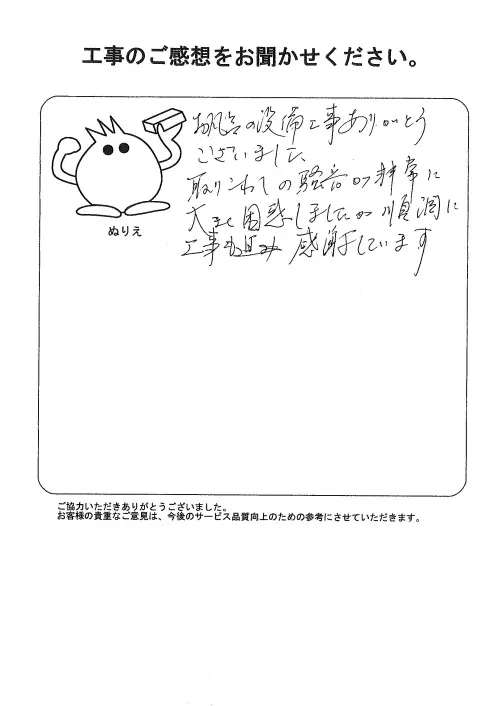 工事のご感想をお聞かせください。
お風呂の設備工事ありがとう
ございました。
取りこわしの騒音が非常に
大きく困惑しましたが順調に
工事も進み 感謝しています
ぬりえ
ご協力いただきありがとうございました。
お客様の貴重なご意見は、今後のサービス品質向上のための参考にさせていただきます。